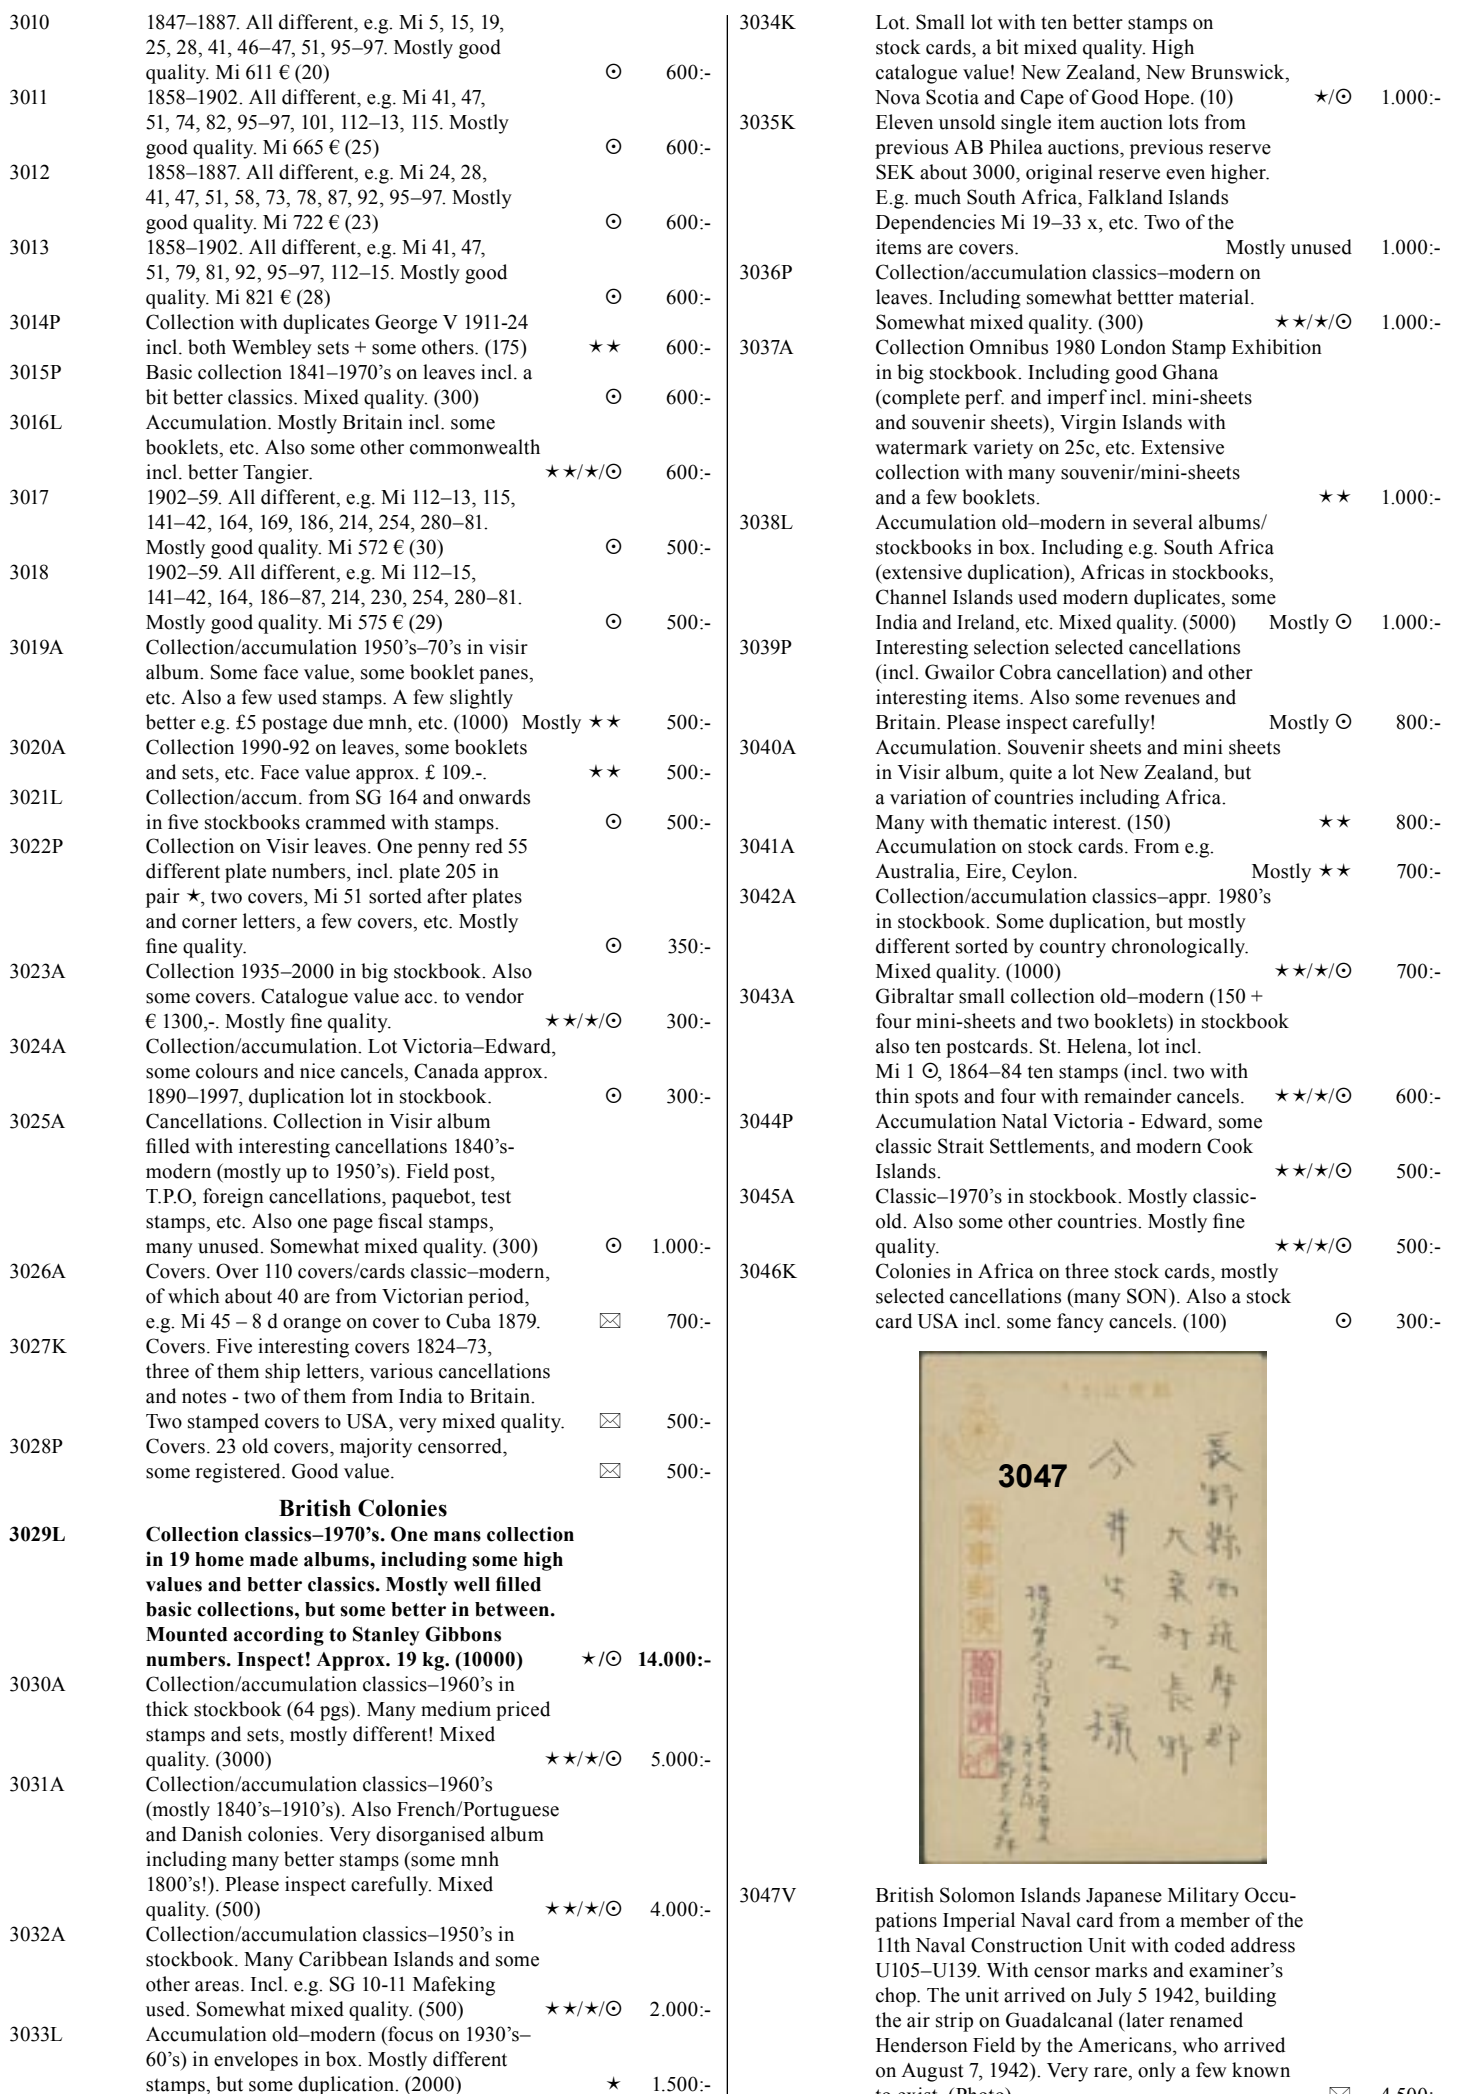 3010 1847–1887. All different, e.g. Mi 5, 15, 19,
25, 28, 41, 46–47, 51, 95–97. Mostly good
quality. Mi 611 € (20) ⊙ 600:-
3011 1858–1902. All different, e.g. Mi 41, 47,
51, 74, 82, 95–97, 101, 112–13, 115. Mostly
good quality. Mi 665 € (25) ⊙ 600:-
3012 1858–1887. All different, e.g. Mi 24, 28,
41, 47, 51, 58, 73, 78, 87, 92, 95–97. Mostly
good quality. Mi 722 € (23) ⊙ 600:-
3013 1858–1902. All different, e.g. Mi 41, 47,
51, 79, 81, 92, 95–97, 112–15. Mostly good
quality. Mi 821 € (28) ⊙ 600:-
3014P Collection with duplicates George V 1911-24
incl. both Wembley sets + some others. (175) ★★ 600:-
3015P Basic collection 1841–1970’s on leaves incl. a
bit better classics. Mixed quality. (300) ⊙ 600:-
3016L Accumulation. Mostly Britain incl. some
booklets, etc. Also some other commonwealth
incl. better Tangier. ★★/★/⊙ 600:-
3017 1902–59. All different, e.g. Mi 112–13, 115,
141–42, 164, 169, 186, 214, 254, 280–81.
Mostly good quality. Mi 572 € (30) ⊙ 500:-
3018 1902–59. All different, e.g. Mi 112–15,
141–42, 164, 186–87, 214, 230, 254, 280–81.
Mostly good quality. Mi 575 € (29) ⊙ 500:-
3019A Collection/accumulation 1950’s–70’s in visir
album. Some face value, some booklet panes,
etc. Also a few used stamps. A few slightly
better e.g. £5 postage due mnh, etc. (1000) Mostly ★★ 500:-
3020A Collection 1990-92 on leaves, some booklets
and sets, etc. Face value approx. £ 109.-. ★★ 500:-
3021L Collection/accum. from SG 164 and onwards
in five stockbooks crammed with stamps. ⊙ 500:-
3022P Collection on Visir leaves. One penny red 55
different plate numbers, incl. plate 205 in
pair ★, two covers, Mi 51 sorted after plates
and corner letters, a few covers, etc. Mostly
fine quality. ⊙ 350:-
3023A Collection 1935–2000 in big stockbook. Also
some covers. Catalogue value acc. to vendor
€ 1300,-. Mostly fine quality. ★★/★/⊙ 300:-
3024A Collection/accumulation. Lot Victoria–Edward,
some colours and nice cancels, Canada approx.
1890–1997, duplication lot in stockbook. ⊙ 300:-
3025A Cancellations. Collection in Visir album
filled with interesting cancellations 1840’s-
modern (mostly up to 1950’s). Field post,
T.P.O, foreign cancellations, paquebot, test
stamps, etc. Also one page fiscal stamps,
many unused. Somewhat mixed quality. (300) ⊙ 1.000:-
3026A Covers. Over 110 covers/cards classic–modern,
of which about 40 are from Victorian period,
e.g. Mi 45 – 8 d orange on cover to Cuba 1879. ✉ 700:-
3027K Covers. Five interesting covers 1824–73,
three of them ship letters, various cancellations
and notes - two of them from India to Britain.
Two stamped covers to USA, very mixed quality. ✉ 500:-
3028P Covers. 23 old covers, majority censorred,
some registered. Good value. ✉ 500:-
British Colonies
3029L Collection classics–1970’s. One mans collection
in 19 home made albums, including some high
values and better classics. Mostly well filled
basic collections, but some better in between.
Mounted according to Stanley Gibbons
numbers. Inspect! Approx. 19 kg. (10000) ★/⊙ 14.000:-
3030A Collection/accumulation classics–1960’s in
thick stockbook (64 pgs). Many medium priced
stamps and sets, mostly different! Mixed
quality. (3000) ★★/★/⊙ 5.000:-
3031A Collection/accumulation classics–1960’s
(mostly 1840’s–1910’s). Also French/Portuguese
and Danish colonies. Very disorganised album
including many better stamps (some mnh
1800’s!). Please inspect carefully. Mixed
quality. (500) ★★/★/⊙ 4.000:-
3032A Collection/accumulation classics–1950’s in
stockbook. Many Caribbean Islands and some
other areas. Incl. e.g. SG 10-11 Mafeking
used. Somewhat mixed quality. (500) ★★/★/⊙ 2.000:-
3033L Accumulation old–modern (focus on 1930’s–
60’s) in envelopes in box. Mostly different
stamps, but some duplication. (2000) ★ 1.500:-
3034K Lot. Small lot with ten better stamps on
stock cards, a bit mixed quality. High
catalogue value! New Zealand, New Brunswick,
Nova Scotia and Cape of Good Hope. (10) ★/⊙ 1.000:-
3035K Eleven unsold single item auction lots from
previous AB Philea auctions, previous reserve
SEK about 3000, original reserve even higher.
E.g. much South Africa, Falkland Islands
Dependencies Mi 19–33 x, etc. Two of the
items are covers. Mostly unused 1.000:-
3036P Collection/accumulation classics–modern on
leaves. Including somewhat bettter material.
Somewhat mixed quality. (300) ★★/★/⊙ 1.000:-
3037A Collection Omnibus 1980 London Stamp Exhibition
in big stockbook. Including good Ghana
(complete perf. and imperf incl. mini-sheets
and souvenir sheets), Virgin Islands with
watermark variety on 25c, etc. Extensive
collection with many souvenir/mini-sheets
and a few booklets. ★★ 1.000:-
3038L Accumulation old–modern in several albums/
stockbooks in box. Including e.g. South Africa
(extensive duplication), Africas in stockbooks,
Channel Islands used modern duplicates, some
India and Ireland, etc. Mixed quality. (5000) Mostly ⊙ 1.000:-
3039P Interesting selection selected cancellations
(incl. Gwailor Cobra cancellation) and other
interesting items. Also some revenues and
Britain. Please inspect carefully! Mostly ⊙ 800:-
3040A Accumulation. Souvenir sheets and mini sheets
in Visir album, quite a lot New Zealand, but
a variation of countries including Africa.
Many with thematic interest. (150) ★★ 800:-
3041A Accumulation on stock cards. From e.g.
Australia, Eire, Ceylon. Mostly ★★ 700:-
3042A Collection/accumulation classics–appr. 1980’s
in stockbook. Some duplication, but mostly
different sorted by country chronologically.
Mixed quality. (1000) ★★/★/⊙ 700:-
3043A Gibraltar small collection old–modern (150 +
four mini-sheets and two booklets) in stockbook
also ten postcards. St. Helena, lot incl.
Mi 1 ⊙, 1864–84 ten stamps (incl. two with
thin spots and four with remainder cancels. ★★/★/⊙ 600:-
3044P Accumulation Natal Victoria - Edward, some
classic Strait Settlements, and modern Cook
Islands. ★★/★/⊙ 500:-
3045A Classic–1970’s in stockbook. Mostly classic-
old. Also some other countries. Mostly fine
quality. ★★/★/⊙ 500:-
3046K Colonies in Africa on three stock cards, mostly
selected cancellations (many SON). Also a stock
card USA incl. some fancy cancels. (100) ⊙ 300:-
3047
長野縣西筑摩郡
大桑村長野
今井
様
軍事郵便
3047V British Solomon Islands Japanese Military Occu-
pations Imperial Naval card from a member of the
11th Naval Construction Unit with coded address
U105–U139. With censor marks and examiner’s
chop. The unit arrived on July 5 1942, building
the air strip on Guadalcanal (later renamed
Henderson Field by the Americans, who arrived
on August 7, 1942). Very rare, only a few known
to exist. (Photo) ✉ 4.500:-